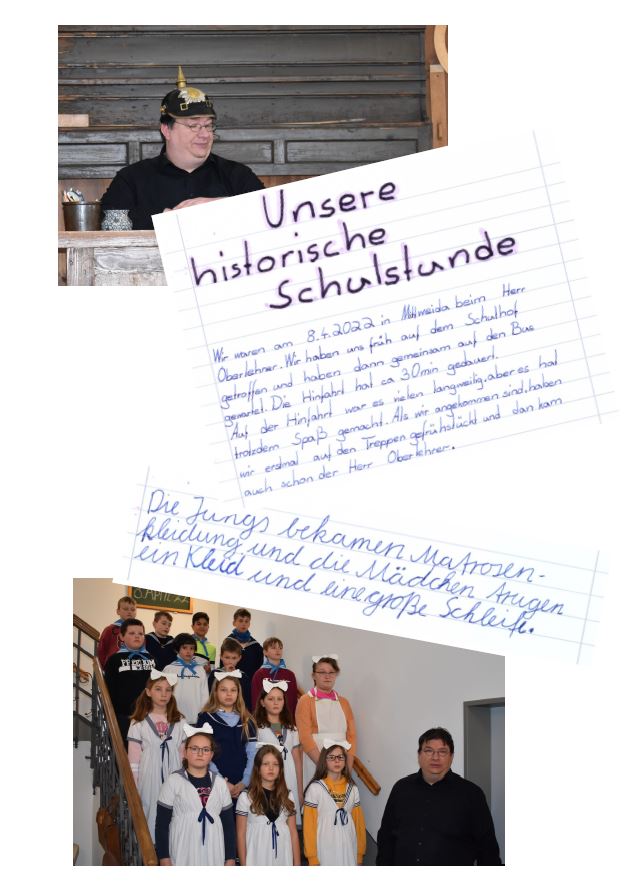 Unsere
historische
Schulstunde
Wir waren am 8.4.2022 in Mittweida beim Herr
Oberlehrer. Wir haben uns früh auf dem Schulhof
getroffen und haben dann gemeinsam auf den Bus
gewartet. Die Hinfahrt hat ca 30min gedauert.
Auf der Hinfahrt war es vielen langweilig, aber es hat
trotzdem Spaß gemacht. Als wir angekommen sind, haben
wir erstmal auf den Treppen gefrühstückt und dan kam
auch schon der Herr Oberlehrer.
Die Jungs bekamen Matrosen-
kleidung und die Mädchen trugen
ein Kleid und eine große Schleife.